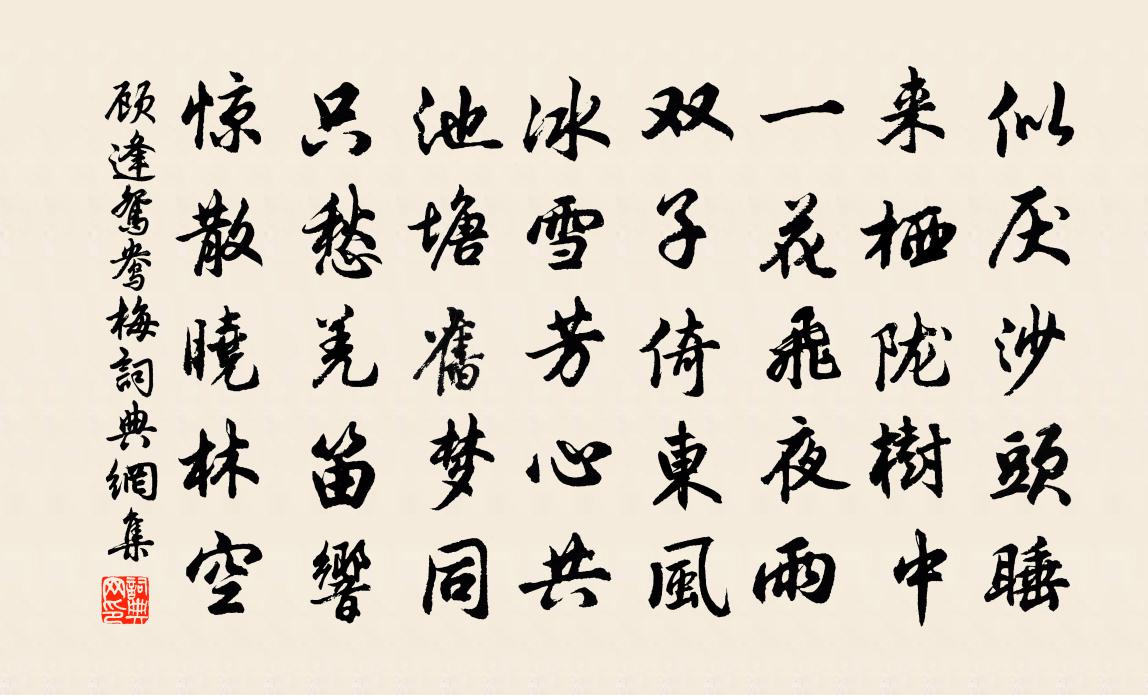 似厌沙頭睡
来栖陇樹中
一花飛夜雨
双子倚東風
冰雪芳心共
池塘舊梦同
只愁羌笛響
惊散曉林空
顾逢鴛鴦梅詞典網集
詞典网印